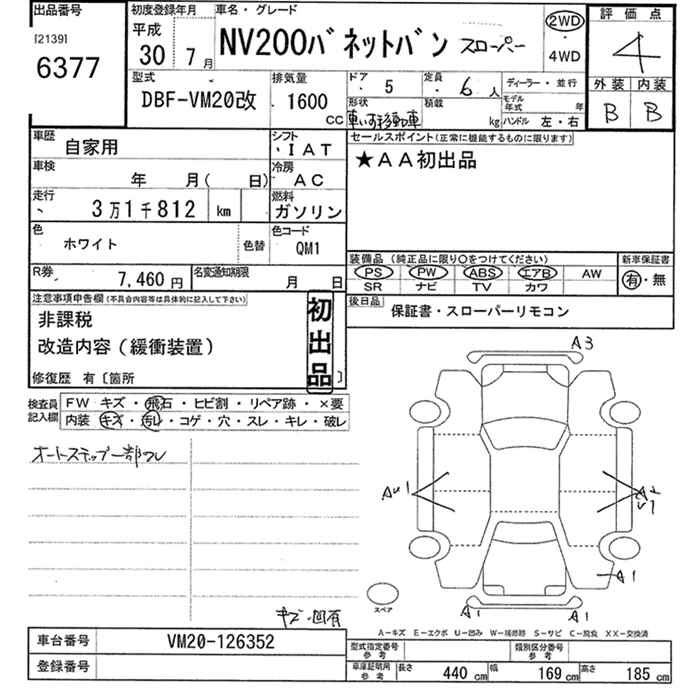 出品番号
[2139]
6377
初度登録年月
平成
30年 7月
車名・グレード
NV200バネットバン スローパー
2WD
・
4WD
評価点
4
外装 内装
B B
型式
DBF-VM20改
排気量
1600
CC
ドア
5
定員
6人
形状
車いす移動車
積載
kg
ディーラー・並行
モデル年式 年
ハンドル 左・右
車歴
自家用
シフト
・IAT
車検
年 月( 日)
冷房
AC
走行
3万1千812 km
燃料
ガソリン
色
ホワイト
色替
色コード
QM1
R券
7,460円
名変通知期限
月 日
セールスポイント(正常に機能するものに限ります)
★AA初出品
装備品(純正品に限り○をつけてください)
PS PW ABS エアB AW
SR ナビ TV カワ
新車保証書
有・無
後日品
保証書・スローパーリモコン
注意事項申告欄(不具合内容等は具体的に記入して下さい)
非課税
改造内容(緩衝装置)
修復歴 有〔箇所 〕
初出品
検査員記入欄
FW キズ・飛石・ヒビ割・リペア跡・×要
内装 キズ・汚レ・コゲ・穴・スレ・キレ・破レ
オートステップ一部サビ
A3
A1
A1
A1
スペア
A1
A-キズ E-エクボ U-凹み W-補修跡 S-サビ C-腐食 XX-交換済
車台番号
VM20-126352
登録番号
型式指定番号
参考
類別区分番号
参考
車庫証明用
参考
長さ 440 cm 幅 169 cm 高さ 185 cm